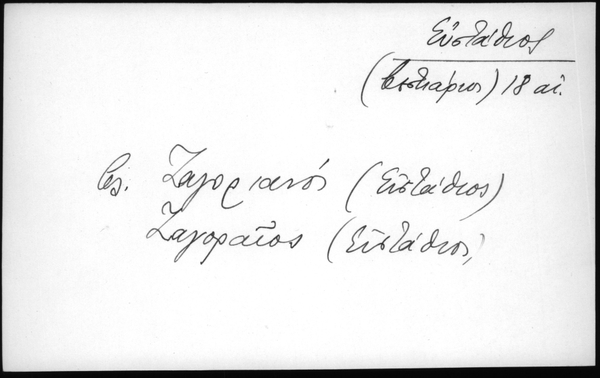 Εὐστάθιος
(βεστιάριος) 18 αἰ.
βλ. Ζαγοριανός (Εὐστάθιος)
Ζαγοραῖος (Εὐστάθιος)